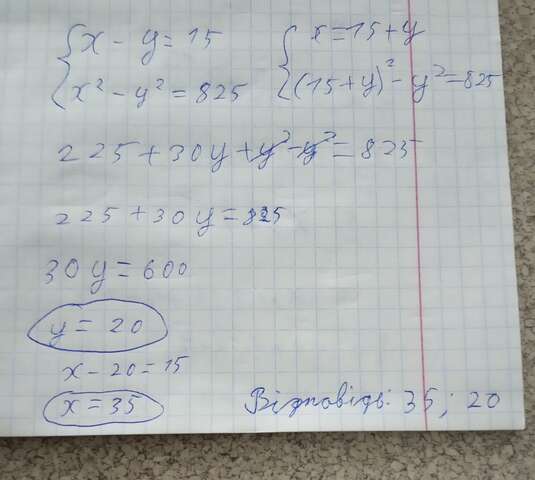 { x - y = 15
x² - y² = 825
{ x = 15 + y
(15 + y)² - y² = 825
225 + 30y + y² - y² = 825
225 + 30y = 825
30y = 600
y = 20
x - 20 = 15
x = 35
Відповідь: 35; 20